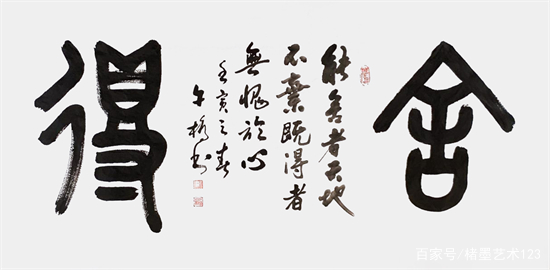 舍
能舍者天地
不棄既得者
無愧於心
壬寅之春
午橋书
得
百家号/楮墨艺术123